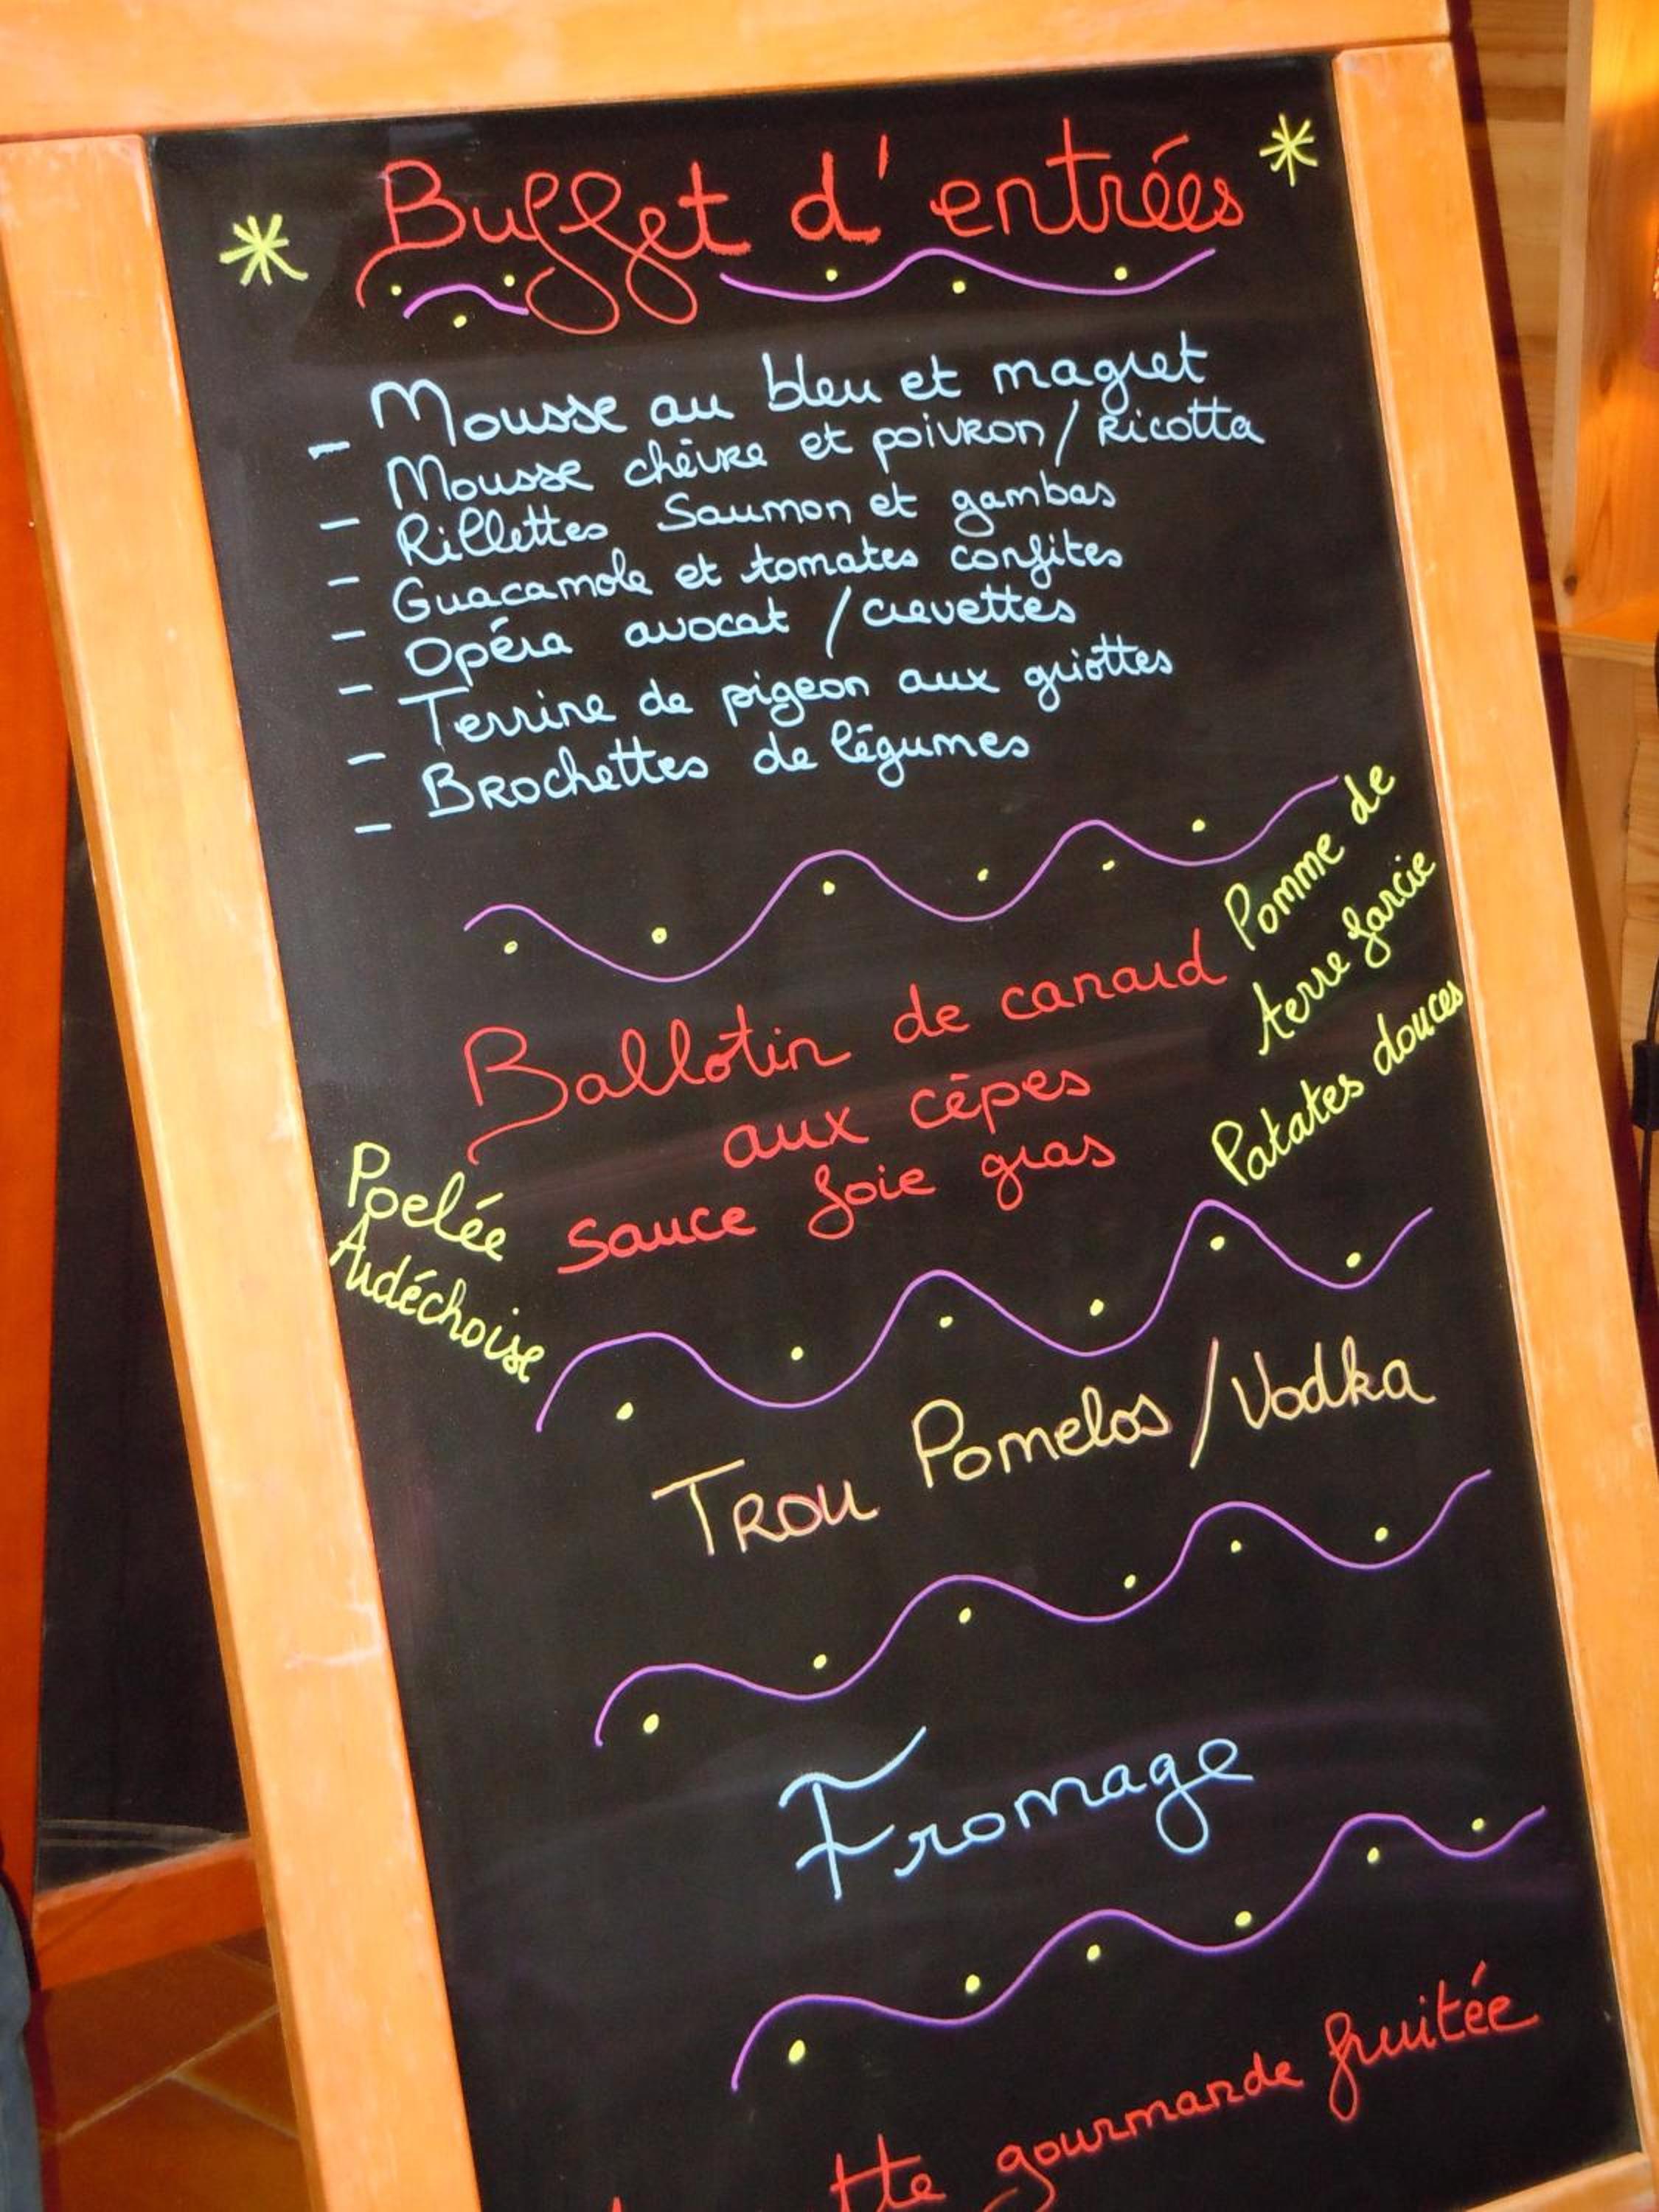 Buffet d'entrées
- Mousse au bleu et magret
- Mousse chèvre et poivron / Ricotta
- Rillettes Saumon et gambas
- Guacamole et tomates confites
- Opéra avocat / crevettes
- Terrine de pigeon aux griottes
- Brochettes de légumes
Ballotin de canard
aux cèpes
sauce foie gras
Pomme de
terre farcie
Patates douces
Poelée
Ardéchoise
Trou Pomelos / Vodka
Fromage
gourmande fruitée